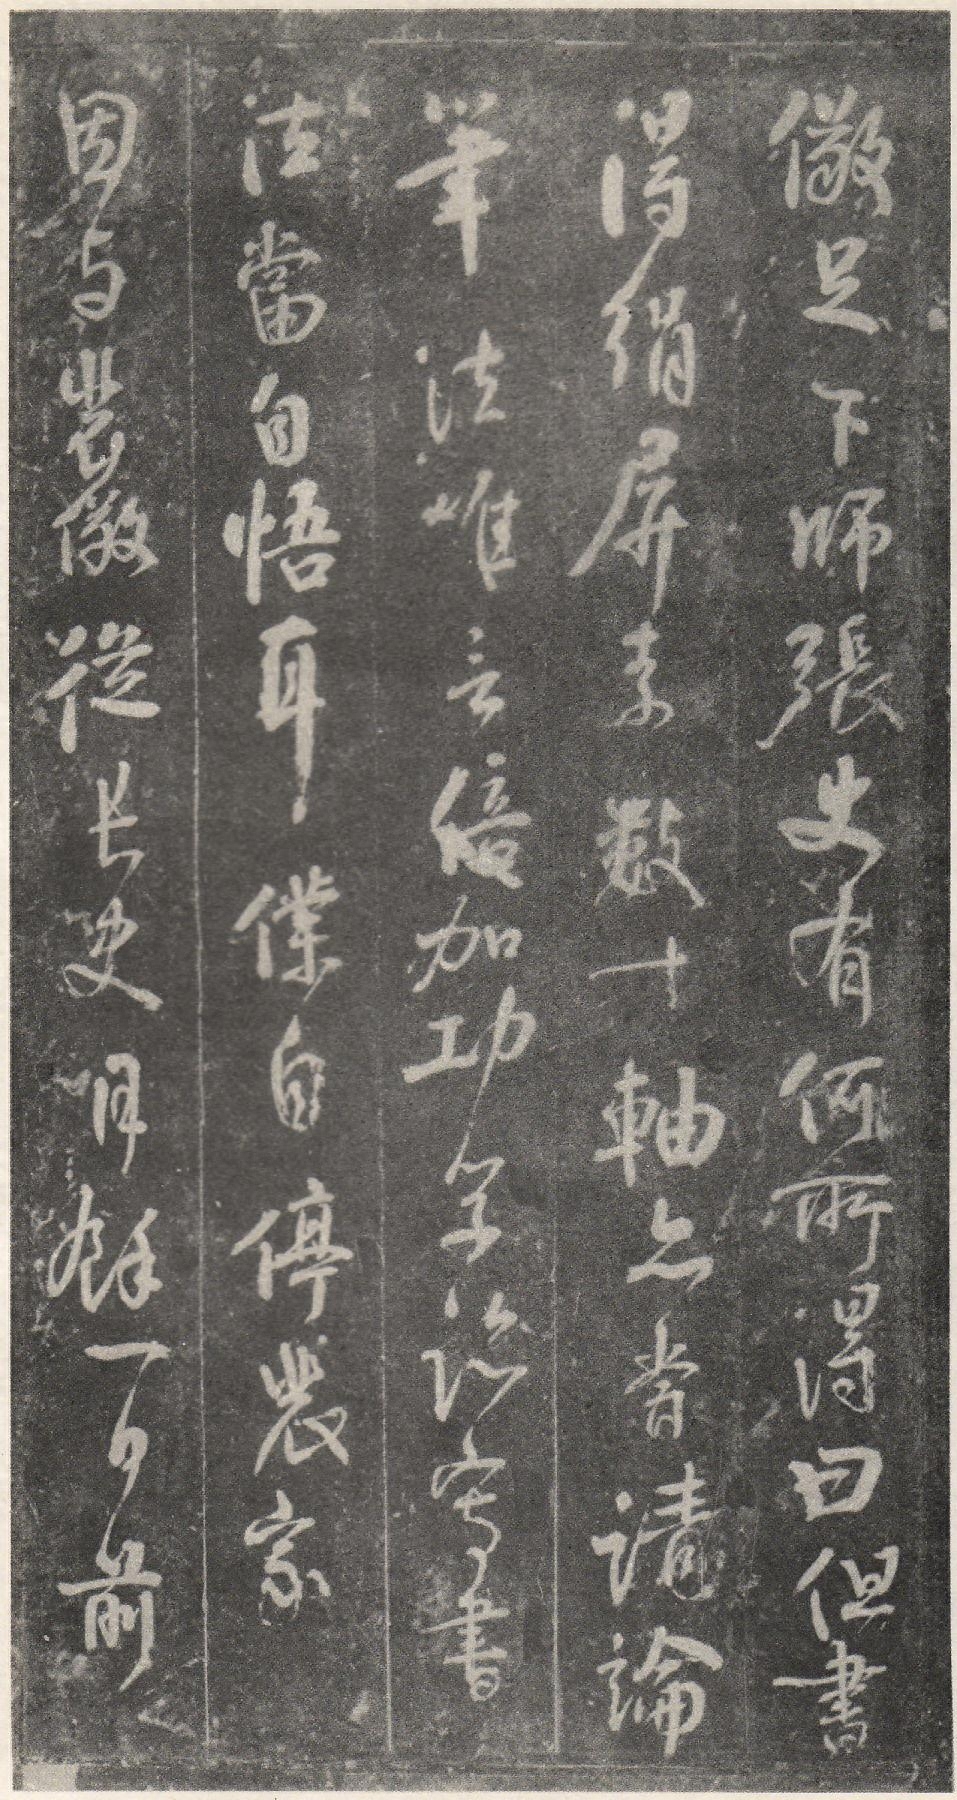 儆足下師張史有何所得曰但書
得絹屏素數十軸亦嘗請論
筆法唯言倍加功學臨寫書
法當自悟耳僕自停裴家
因與裴儆從長史月餘可前